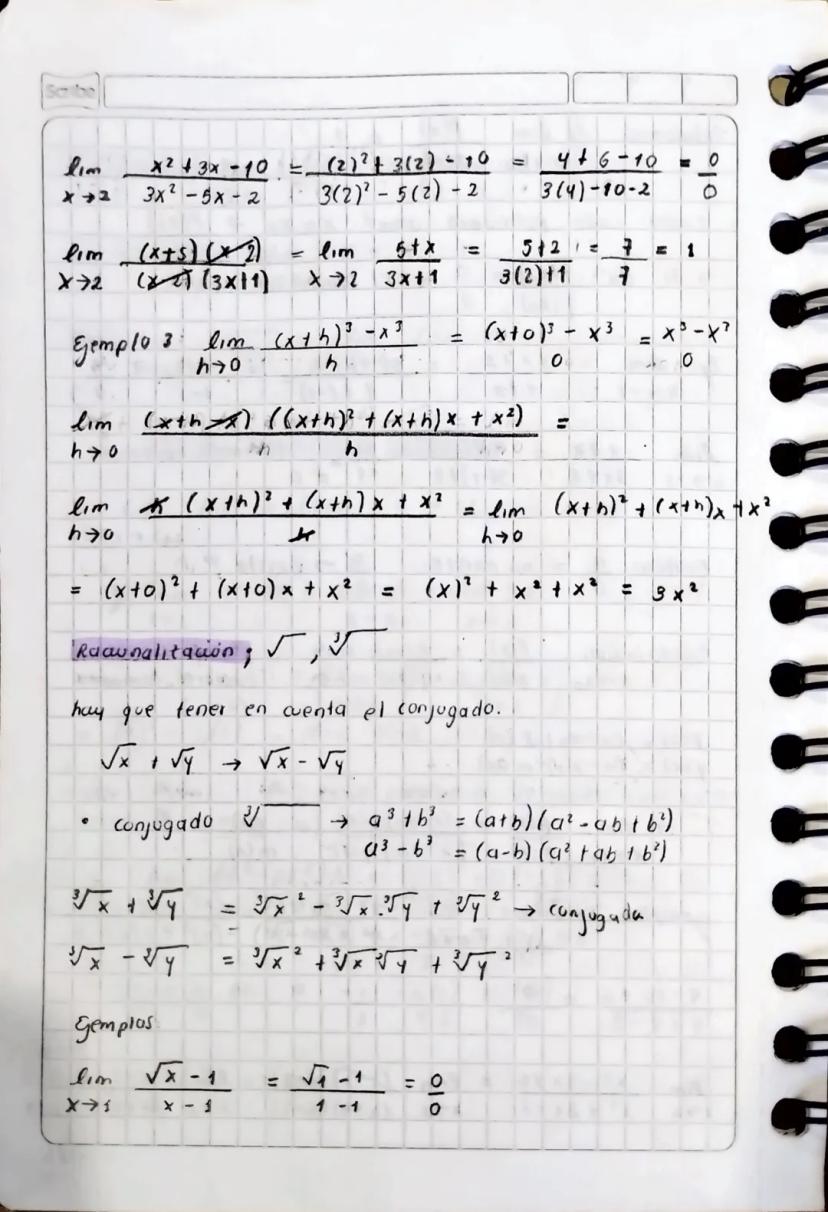 Scribe
lim x→2 (x² + 3x - 10)/(3x² - 5x - 2) = ((2)² + 3(2) - 10)/(3(2)² - 5(2) - 2) = (4 + 6 - 10)/(3(4) - 10 - 2) = 0/0
lim x→2 ((x+5)(x-2))/((x-2)(3x+1)) = lim x→2 (5+x)/(3x+1) = (5+2)/(3(2)+1) = 7/7 = 1
Ejemplo 3 lim h→0 ((x+h)³ - x³)/h = ((x+0)³ - x³)/0 = (x³ - x³)/0
lim h→0 ((x+h-x) ((x+h)² + (x+h)x + x²))/h =
lim h→0 (h (x+h)² + (x+h)x + x²)/h = lim h→0 (x+h)² + (x+h)x + x²
= (x+0)² + (x+0)x + x² = (x)² + x² + x² = 3x²
Racionalización; √ , ∛
hay que tener en cuenta el conjugado.
√x + √y → √x - √y
• conjugado ∛ → a³ + b³ = (a+b)(a² - ab + b²)
a³ - b³ = (a-b)(a² + ab + b²)
∛x + ∛y = ∛x² - ∛x.∛y + ∛y² → conjugada
∛x - ∛y = ∛x² + ∛x ∛y + ∛y²
Ejemplos
lim x→1 (√x - 1)/(x - 1) = (√1 - 1)/(1 - 1) = 0/0